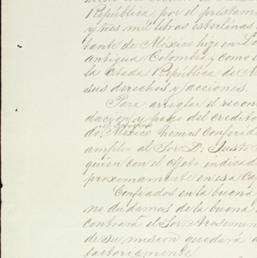 República por el préstamo
y tres mil libras esterlinas
tante de México hizo en Lo
antigua Colombia, como
la citada República de
sus derechos y acciones.
Para arreglar el recono
dacion y pago del credito
de México hemos conferido
amplio al Sor. D. Justo
quien con el objeto indicado
proximamente en esa Ca
Confiados en la buena
no dudamos de la buena
contrará el Sor.
de su mision quedará
factoriamente